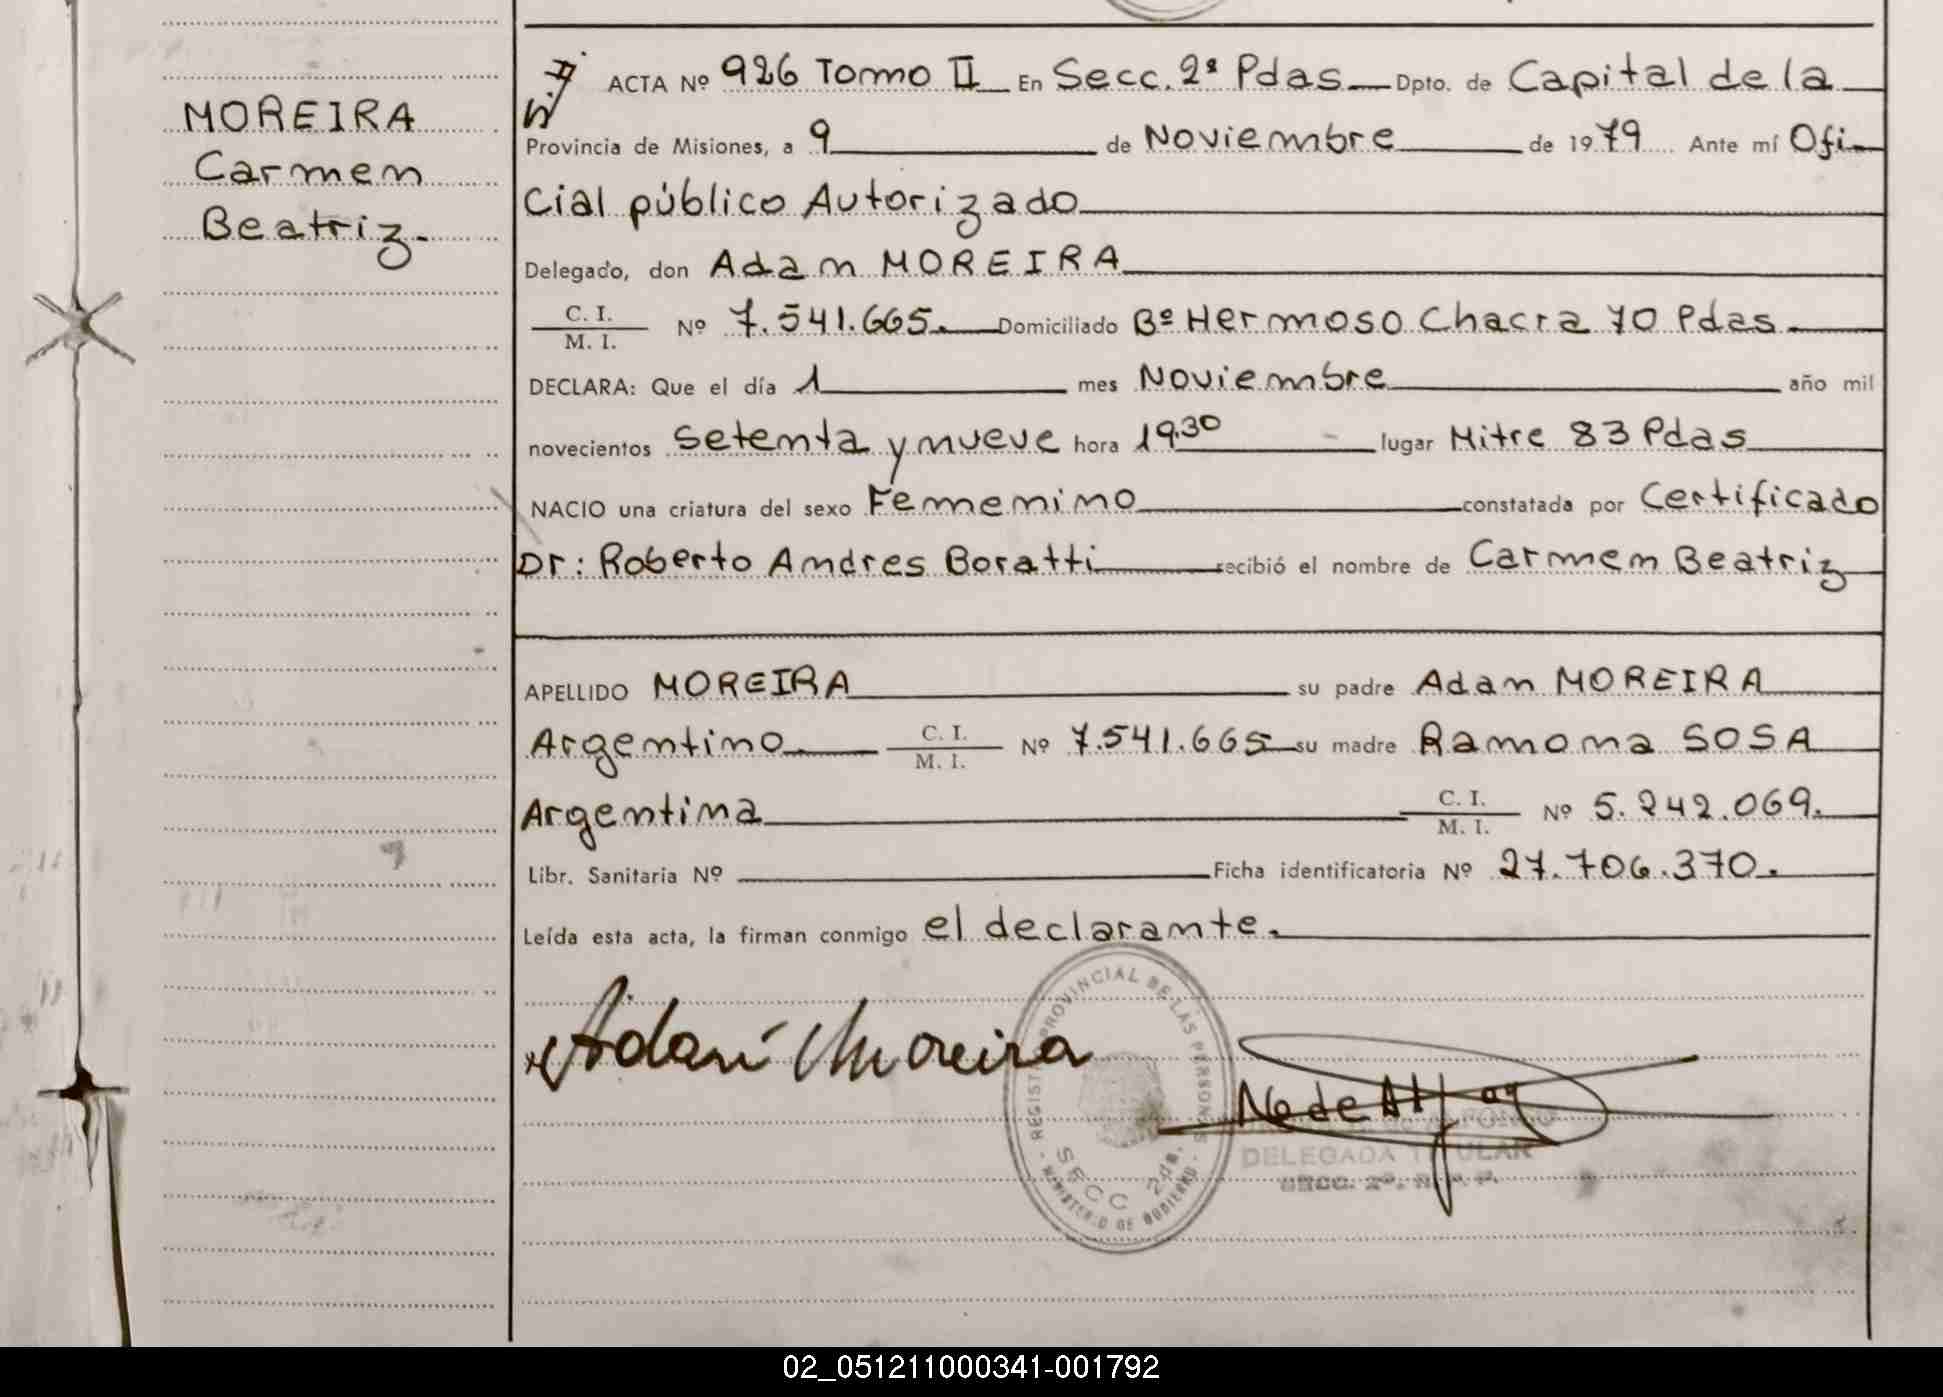 MOREIRA
Carmen
Beatriz.
ACTA Nº 926 Tomo II En Secc. 2ª Pdas Dpto. de Capital de la
Provincia de Misiones, a 9 de Noviembre de 1979 Ante mí Ofi
cial público Autorizado
Delegado, don Adan MOREIRA
C. I.
M. I. Nº 7.541.665. Domiciliado Bº Hermoso Chacra 70 Pdas.
DECLARA: Que el día 1 mes Noviembre año mil
novecientos setenta y nueve hora 19.30 lugar Mitre 83 Pdas
NACIO una criatura del sexo Femenino constatada por Certificado
Dr: Roberto Andres Boratti recibió el nombre de Carmen Beatriz
APELLIDO MOREIRA su padre Adan MOREIRA
Argentino C. I.
M. I. Nº 7.541.665 su madre Ramona SOSA
Argentina C. I.
M. I. Nº 5.242.069.
Libr. Sanitaria Nº Ficha identificatoria Nº 27.706.370.
Leída esta acta, la firman conmigo el declarante.
Adan Moreira
REGISTRO PROVINCIAL DE LAS PERSONAS
SECC 2da.
MINISTERIO DE GOBIERNO
DELEGADA TITULAR
SECC. 2ª. R. P. P.
02_051211000341-001792